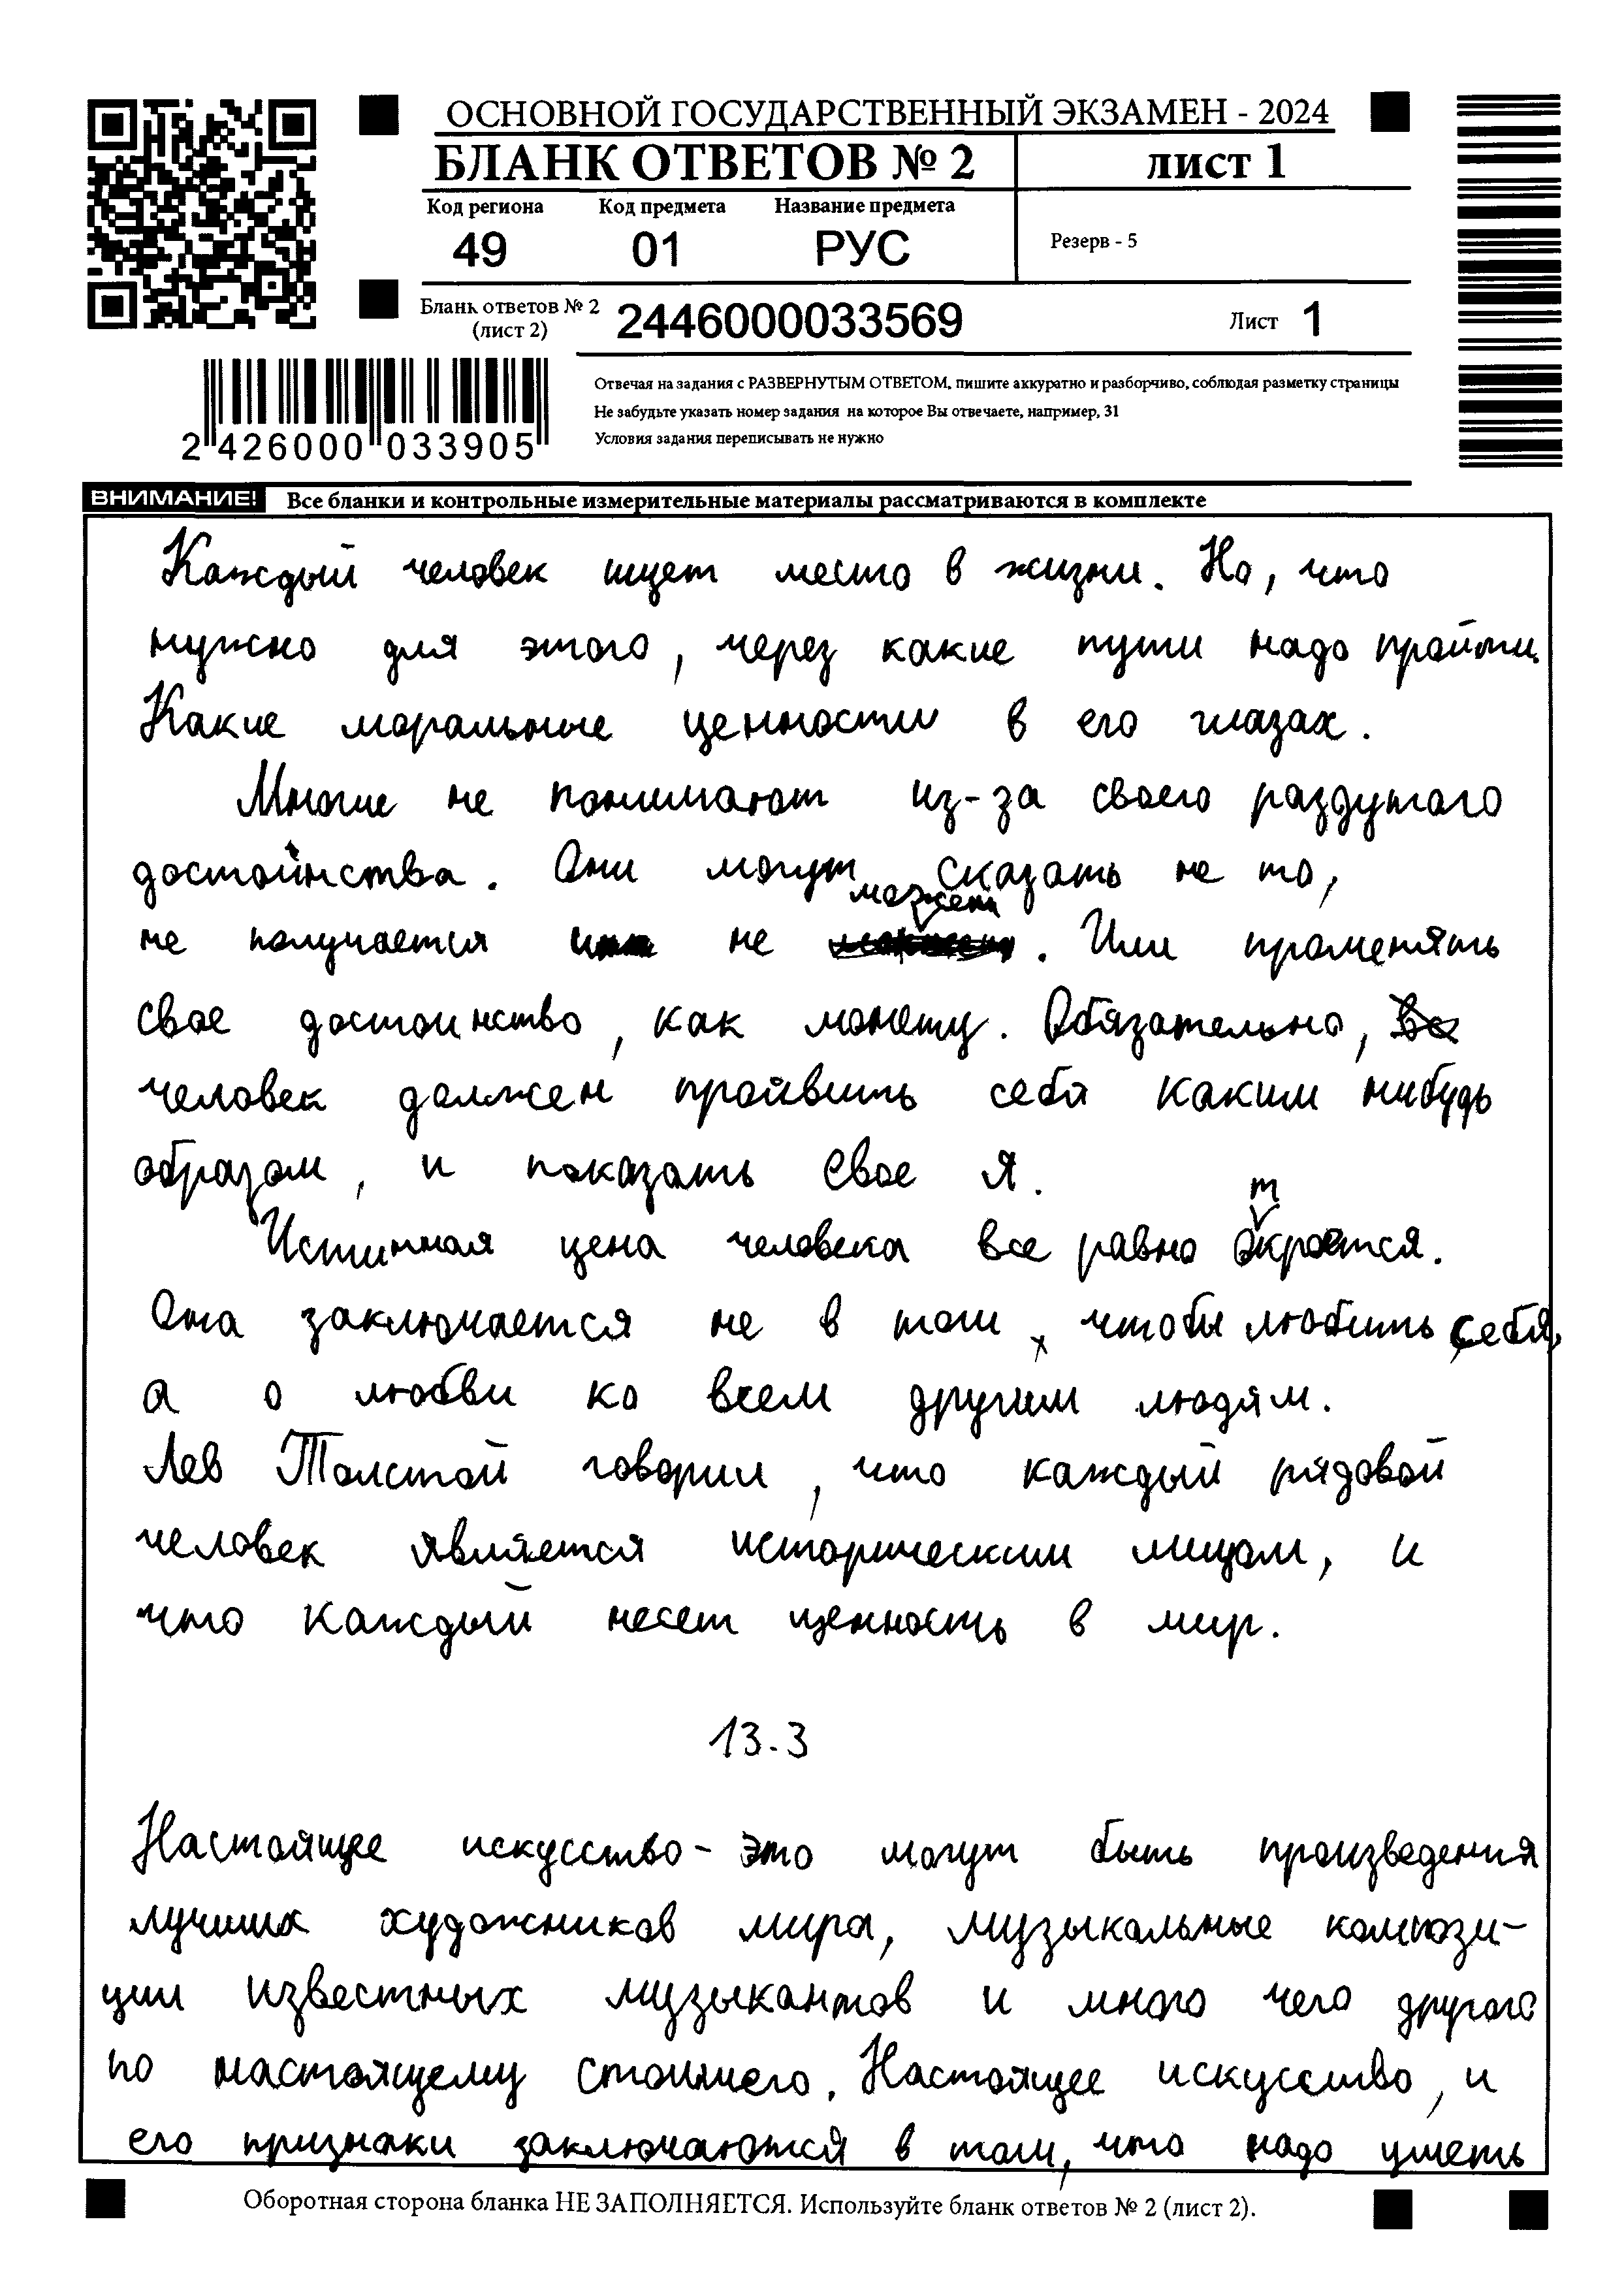 ОСНОВНОЙ ГОСУДАРСТВЕННЫЙ ЭКЗАМЕН - 2024
БЛАНК ОТВЕТОВ № 2
лист 1
Код региона
Код предмета
Название предмета
49
01
РУС
Резерв - 5
Бланк ответов № 2
(лист 2)
2446000033569
Лист 1
2 426000 033905
Отвечая на задания с РАЗВЕРНУТЫМ ОТВЕТОМ, пишите аккуратно и разборчиво, соблюдая разметку страницы
Не забудьте указать номер задания на которое Вы отвечаете, например, 31
Условия задания переписывать не нужно
ВНИМАНИЕ! Все бланки и контрольные измерительные материалы рассматриваются в комплекте
Каждый человек ищет место в жизни. Но, что
нужно для этого, через какие пути надо пройти.
Какие моральные ценности в его глазах.
Многие не понимают из-за своего раздутого
достоинства. Они могут сказать не то,
не получается не может. Или променять
свое достоинство, как монету. Обязательно,
человек должен проявить себя каким нибудь
образом, и показать свое Я.
Истинная цена человека все равно откроется.
Она заключается не в том, чтобы любить себя,
а о любви ко всем другим людям.
Лев Толстой говорил, что каждый рядовой
человек является историческим лицом, и
что каждый несет ценность в мир.
13.3
Настоящее искусство - это могут быть произведения
лучших художников мира, музыкальные компози-
ции известных музыкантов и много чего другого
по настоящему стоишего. Настоящее искусство, и
его признаки заключаются в том, что надо уметь
Оборотная сторона бланка НЕ ЗАПОЛНЯЕТСЯ. Используйте бланк ответов № 2 (лист 2).